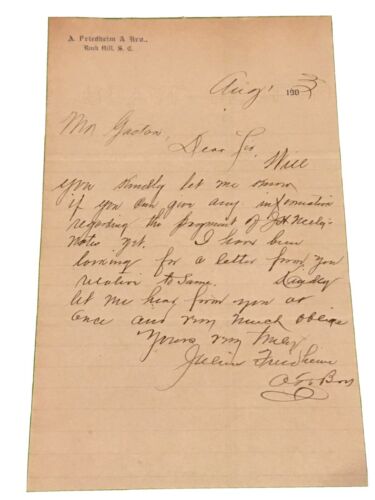 A. Friedheim & Bro.,
Rock Hill, S. C.
Aug 1 1903
Mr Gaston,
Dear Sir,
Will
you kindly let me know
if you can give any information
regarding the payment of J H Neely
Notes yet. I have been
looking for a letter from you
relative to same. Kindly
let me hear from you at
once and very much oblige
Yours very truly
Julius Friedheim